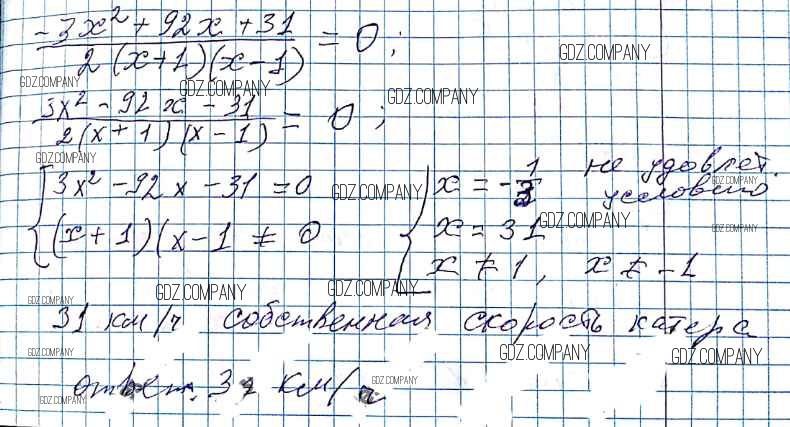 -3x² + 92x + 31 / 2(x+1)(x-1) = 0;
GDZ.COMPANY
GDZ.COMPANY
GDZ.COMPANY
GDZ.COMPANY
3x² - 92x - 31 / 2(x+1)(x-1) = 0;
GDZ.COMPANY
{ 3x² - 92x - 31 = 0
(x+1)(x-1 ≠ 0
GDZ.COMPANY
{ x = -1/3 не удовлет.
условию
GDZ.COMPANY
x = 31
GDZ.COMPANY
GDZ.COMPANY
x ≠ 1, x ≠ -1
GDZ.COMPANY
GDZ.COMPANY
GDZ.COMPANY
31 км/ч собственная скорость катера
GDZ.COMPANY
GDZ.COMPANY
GDZ.COMPANY
ответ. 31 км/ч
GDZ.COMPANY
GDZ.COMPANY